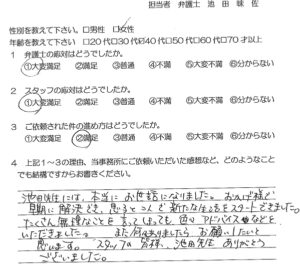 担当者 弁護士 池田 味佐
性別を教えて下さい。 □男性 □女性
年齢を教えて下さい □20代□30代□40代□50代□60代□70才以上
1 弁護士の応対はどうでしたか。
①大変満足 ②満足 ③普通 ④不満 ⑤大変不満 ⑥分からない
2 スタッフの応対はどうでしたか。
①大変満足 ②満足 ③普通 ④不満 ⑤大変不満 ⑥分からない
3 ご依頼された件の進め方はどうでしたか。
①大変満足 ②満足 ③普通 ④不満 ⑤大変不満 ⑥分からない
4 上記1～3の理由、当事務所にご依頼いただいた感想など、どのようなこと
でも結構ですからお書きください。
池田先生には、本当にお世話になりました。おかげ様で
早期に解決でき、息子と二人で新たな生活をスタートできました。
たくさん無理なことを言ってしまっても、色々アドバイスなどを
いただきました。また何かありましたらお願いしたいと
思います。スタッフの皆様、池田先生ありがとう
ございました。